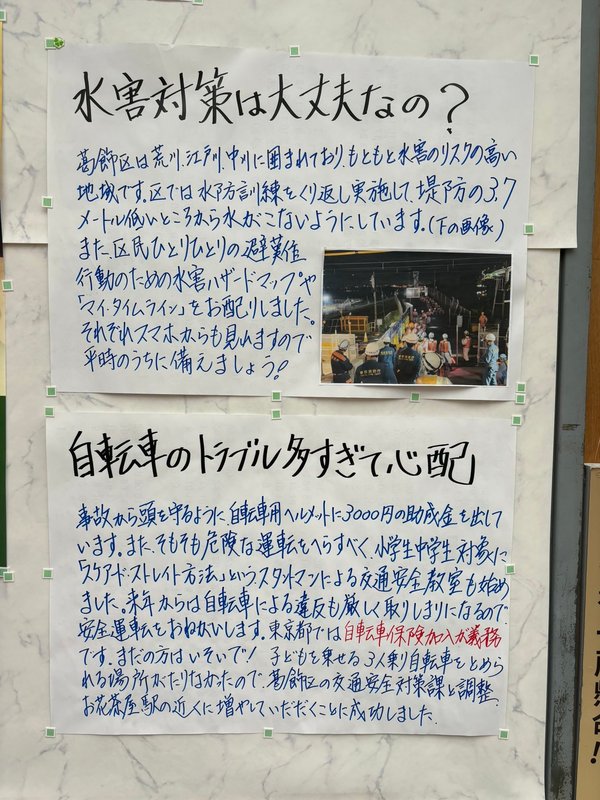 水害対策は大丈夫なの？
葛飾区は荒川、江戸川、中川に囲まれており、もともと水害のリスクの高い
地域です。区では水防訓練をくり返し実施して、堤防の3.7
メートル低いところから水がこないようにしています。(下の画像)
また、区民ひとりひとりの避難
行動のための水害ハザードマップや
「マイ・タイムライン」をお配りしました。
それぞれスマホからも見れますので
平時のうちに備えましょう!
自転車のトラブル多すぎて心配
事故から頭を守るように、自転車用ヘルメットに3000円の助成金を出して
います。また、そもそも危険な運転をへらすべく、小学生中学生対象に
「スケアド・ストレイト方法」という、スタントマンによる交通安全教室も始め
ました。来年からは自転車による違反も厳しく取りしまりになるので、
安全運転をおねがいします。東京都では自転車保険加入が義務
です。まだの方はいそいで! 子どもを乗せる3人乗り自転車をとめら
れる場所がたりなかったので、葛飾区の交通安全対策課と調整、
お花茶屋駅の近くに増やしていただくことに成功しました。